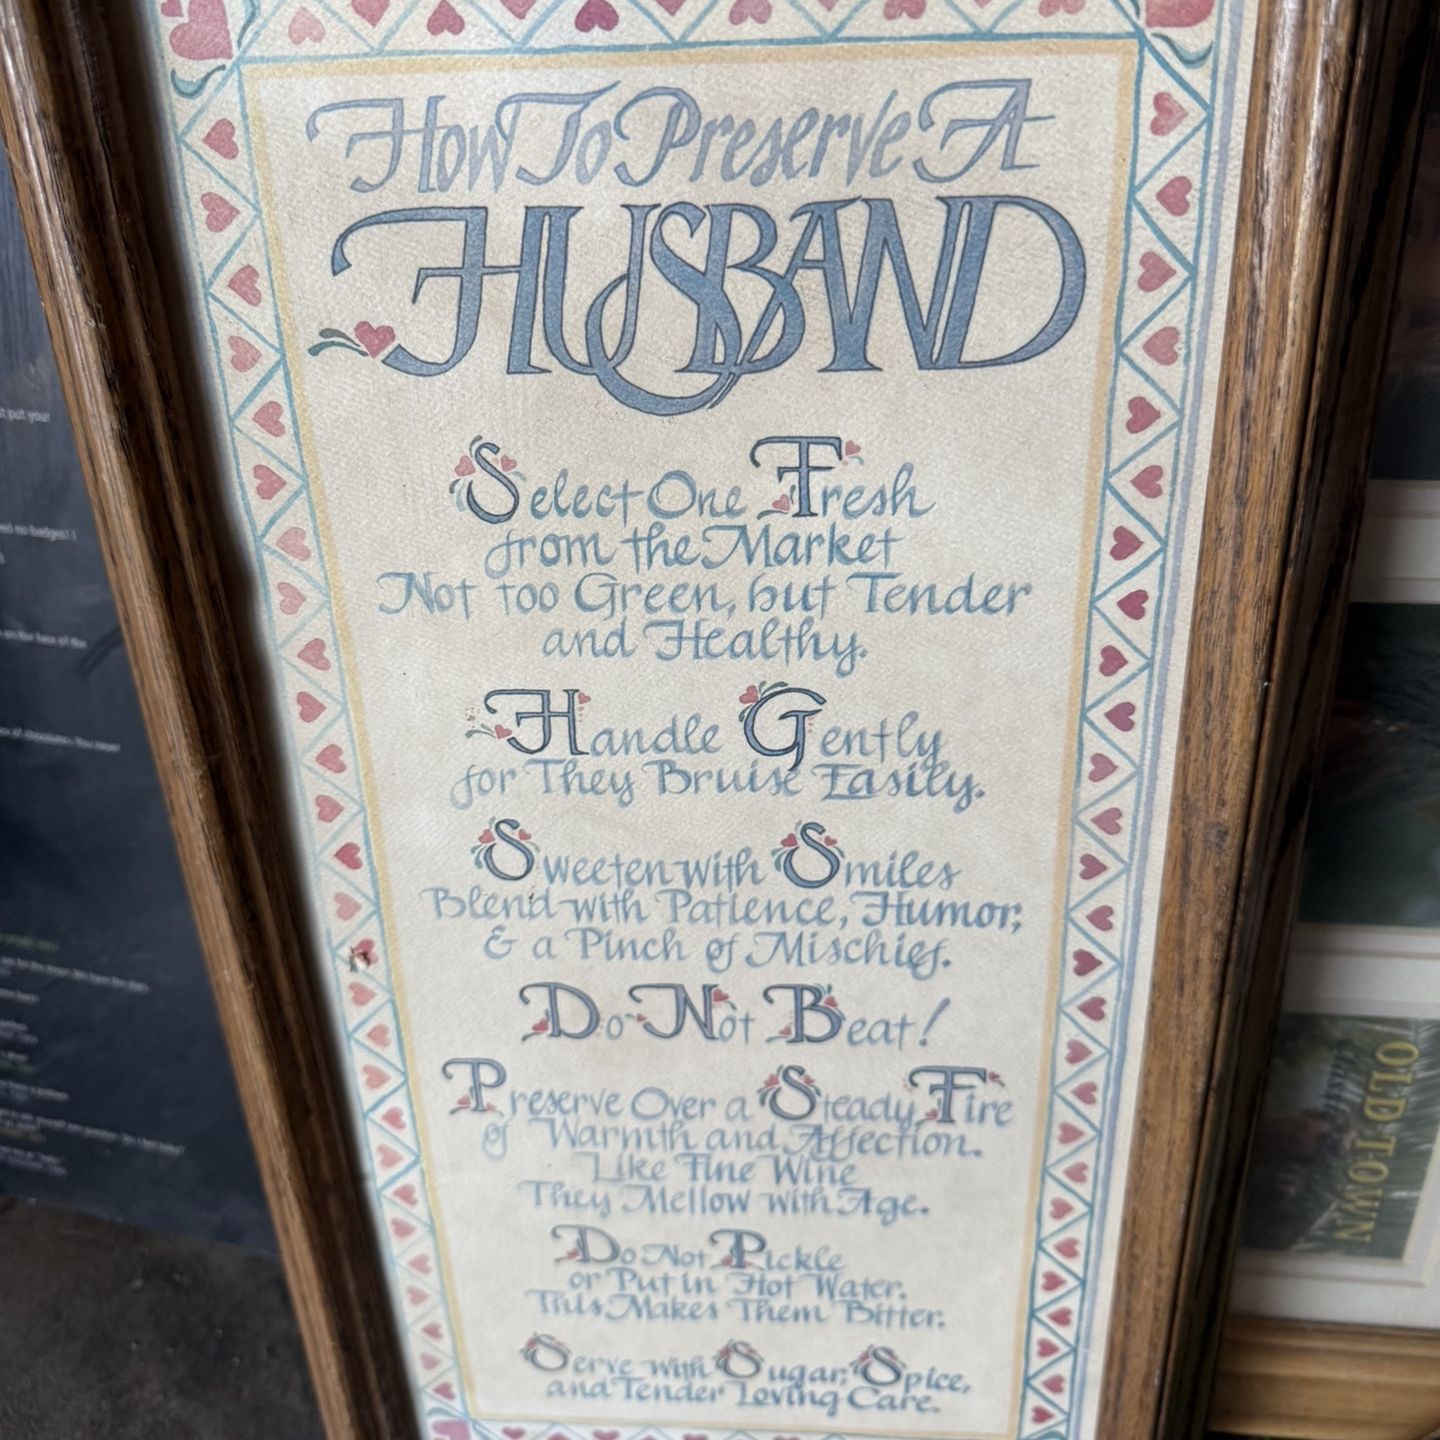 How To Preserve A
HUSBAND
Select One Fresh
from the Market
Not too Green, but Tender
and Healthy.
Handle Gently
for They Bruise Easily.
Sweeten with Smiles
Blend with Patience, Humor,
& a Pinch of Mischief.
Do Not Beat!
Preserve Over a Steady Fire
of Warmth and Affection.
Like Fine Wine
They Mellow with Age.
Do Not Pickle
or Put in Hot Water.
This Makes Them Bitter.
Serve with Sugar, Spice,
and Tender Loving Care.
put you!
no badges!
on the back of the
You never
OLD TOWN